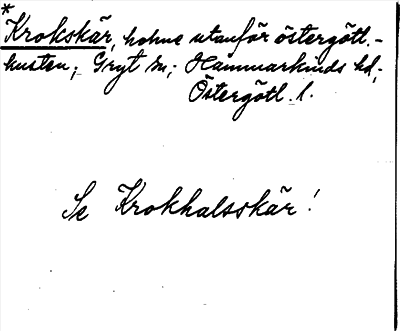 *
Krokskär, holme utanför östergötl.-
kusten; Gryt sn; Hammarkinds hd,
Östergötl. l.
Se Krokhalsskär!